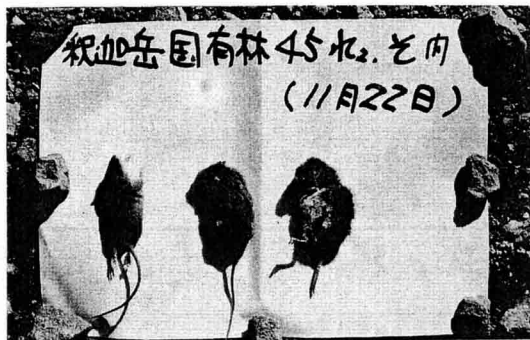 釈迦岳国有林45れ2.その内
(11月22日)